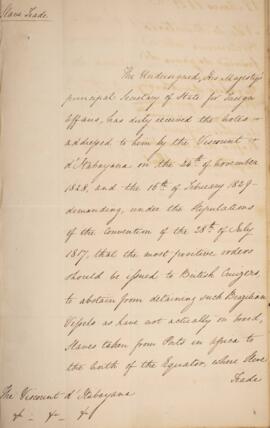 Slave Trade.
The Undersigned, His Majesty's
principal Secretary of State for Foreign
Affairs, has duly received the notes
addressed to him by the Viscount
d'Itabayana on the 24th of November
1828, and the 16th of February 1829
demanding, under the Stipulations
of the Convention of the 28th of July
1817, that the most positive orders
should be issued to British Cruizers,
to abstain from detaining such Brazilian
Vessels as have not actually on board,
Slaves taken from Ports in Africa to
the North of the Equator, where Slave
Trade
The Viscount d'Itabayana
&c &c &c